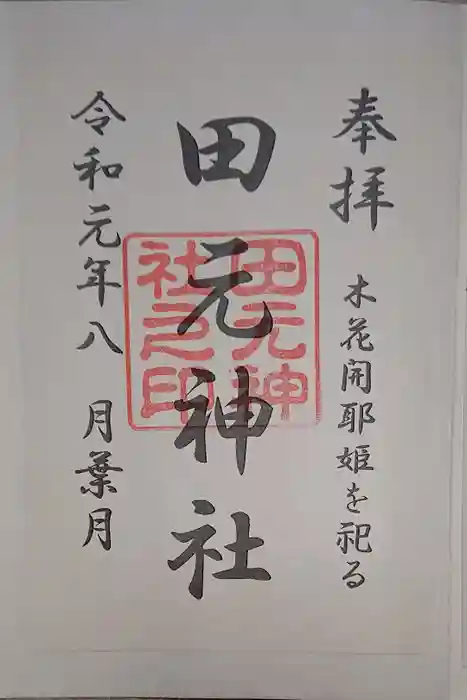 奉拝
木花開耶姫を祀る
田元神社
田元神
社之印
令和元年八 月葉月